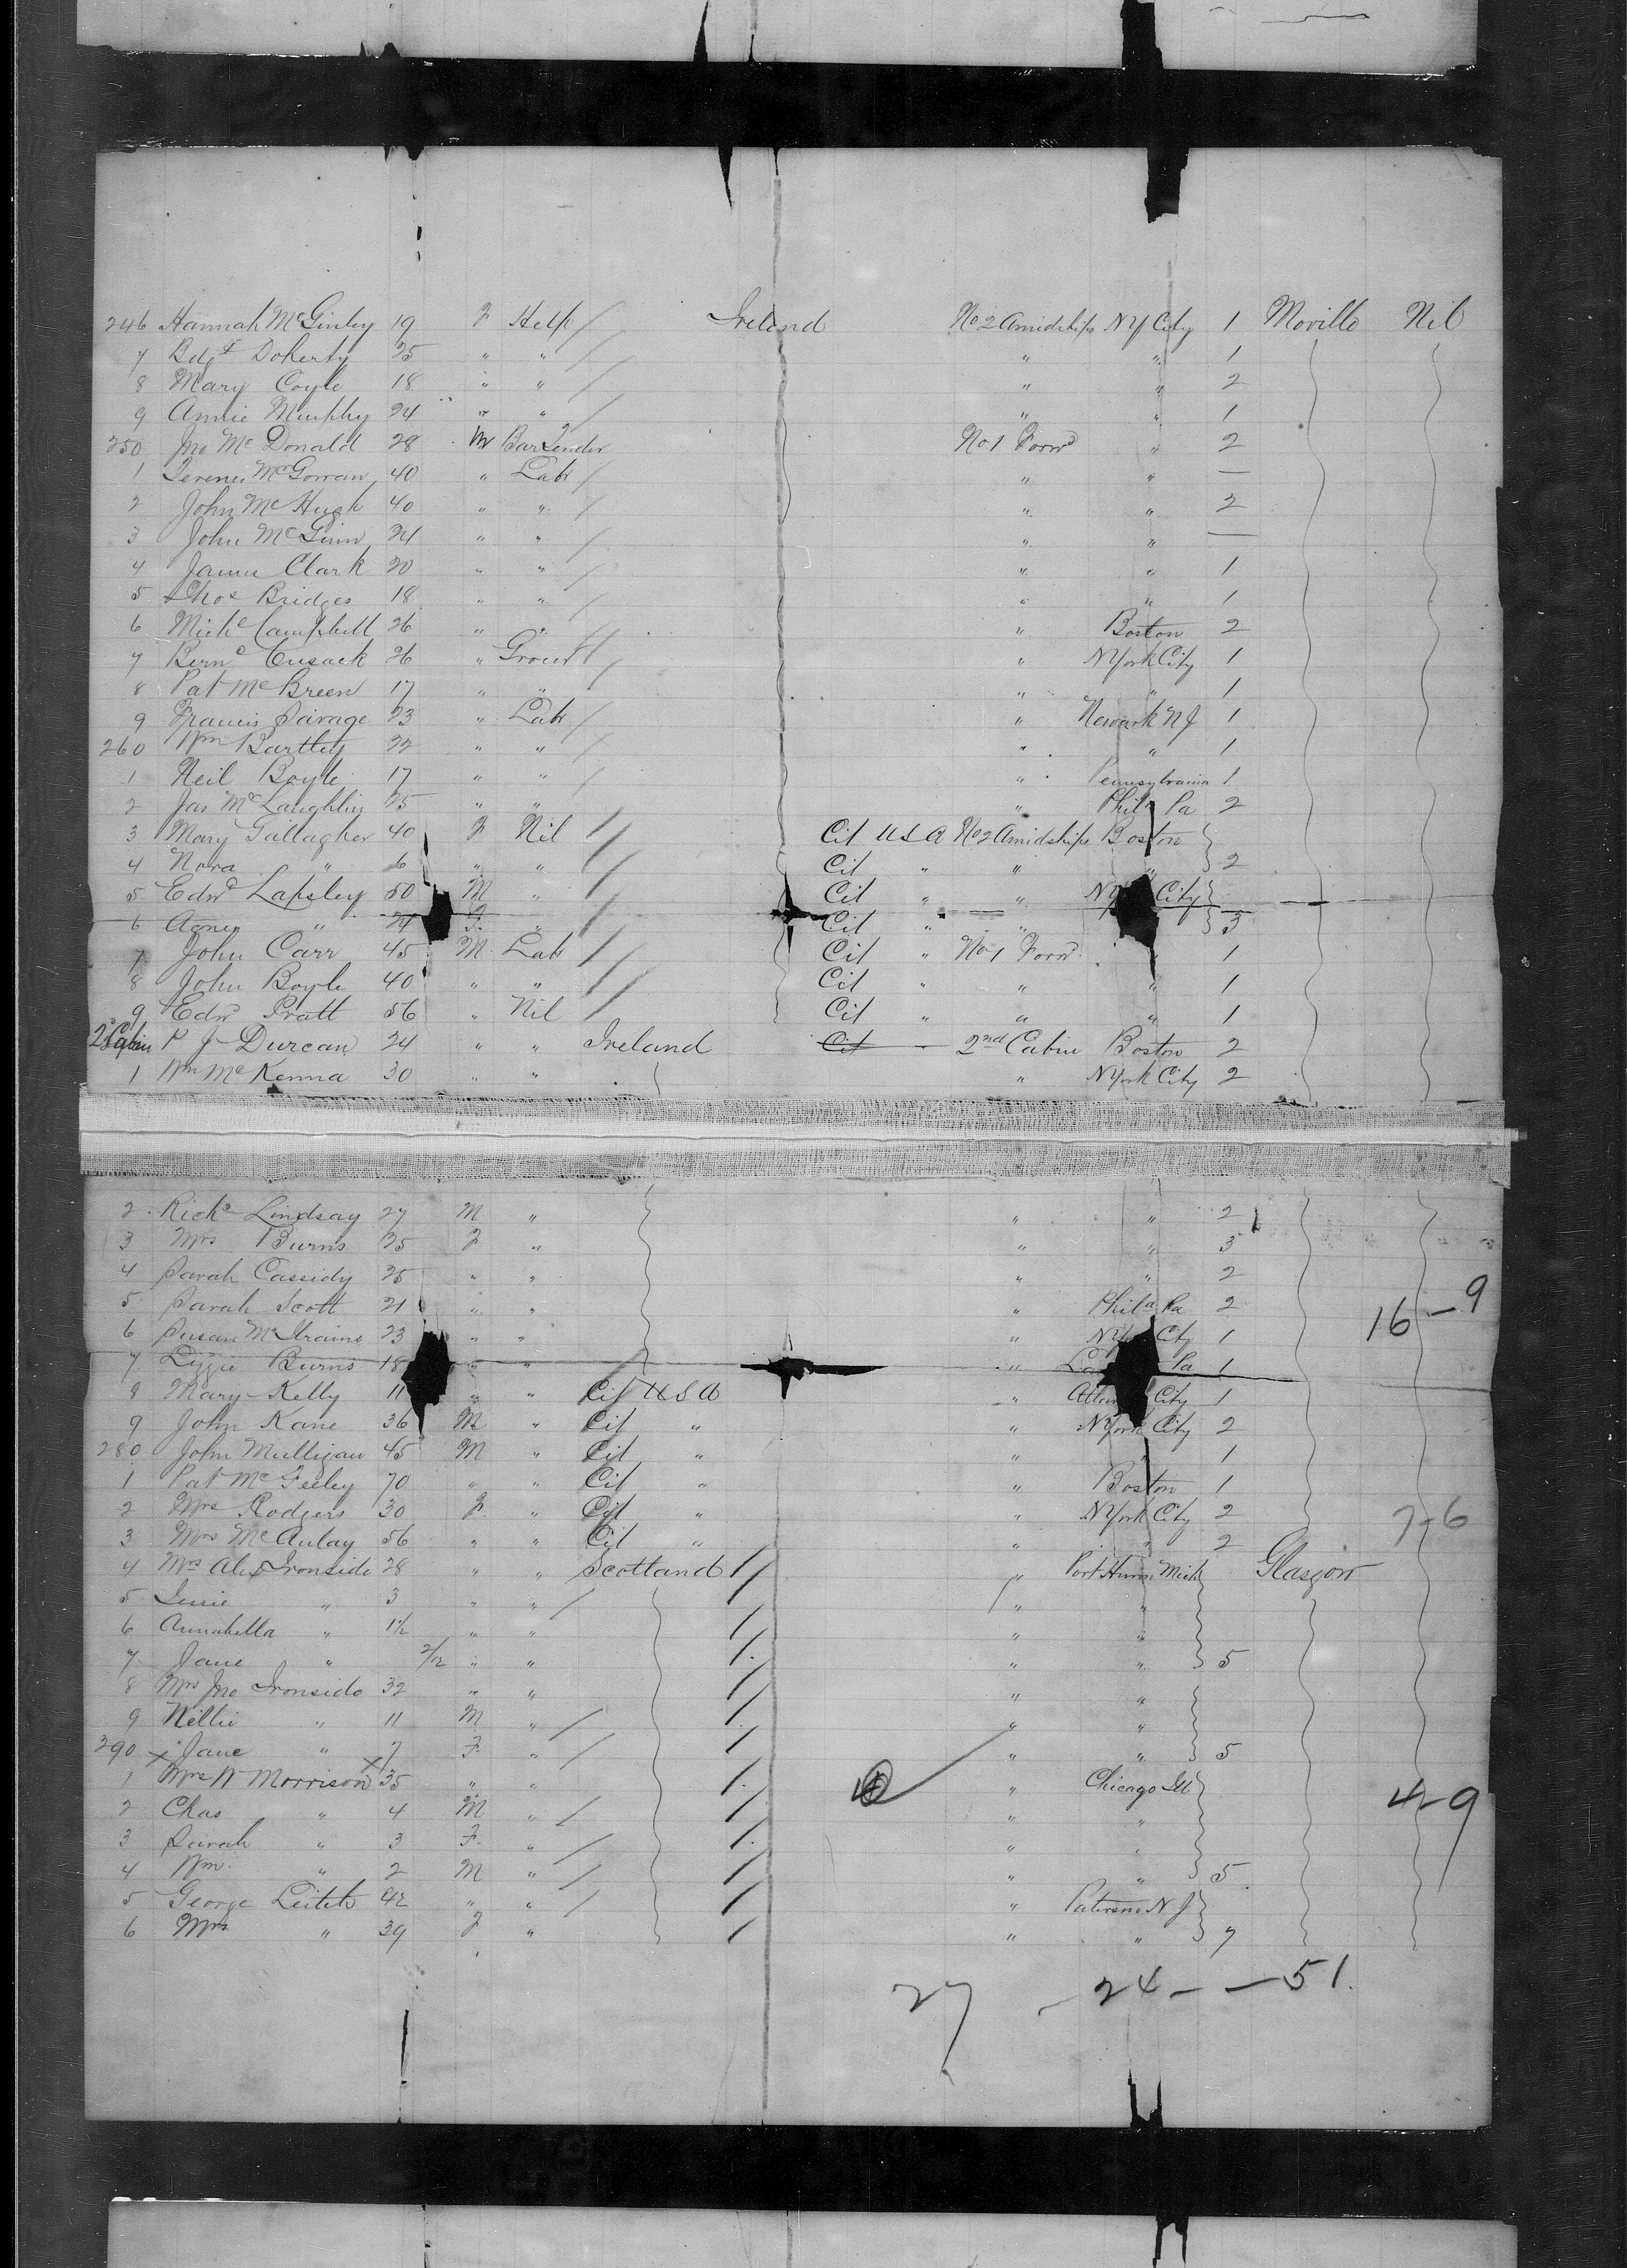 246 Hannah McGinley 19 F Help Ireland No 2 Amidships NY City 1 Moville Nil
7 Bdgt Doherty 25 " " " " 1
8 Mary Coyle 18 " " " " 2
9 Annie Murphy 24 " " " " 1
250 Jno McDonald 28 M BarTender No 1 Forwd " 2
1 Terence McGowan 40 " Labr " " —
2 John McHugh 40 " " " " 2
3 John McGinn 24 " " " " —
4 James Clark 20 " " " " 1
5 Thos Bridges 18 " " " " 1
6 Michl Campbell 26 " " " Boston 2
7 Bernd Cusack 26 " " NYork City 1
8 Pat McBreen 17 " " " " 1
9 Francis Savage 23 " Labr " Newark NJ 1
260 Wm Bartley 22 " " " " 1
1 Neil Boyle 17 " " " Pennsylvania 1
2 Jas McLaughlin 25 " " " Phila Pa 2
3 Mary Gallagher 40 F Nil Cit USA No 2 Amidships Boston
4 Nora " 6 " " Cit " " " 2
5 Edwd Lapsley 50 M " Cit " " NY City
6 Agnes " 24 F " Cit " " " 3
7 John Carr 45 M Labr Cit " No 1 Forwd " 1
8 John Boyle 40 " " Cit " " " 1
9 Edwd Pratt 56 " Nil Cit " " " 1
2 Cabin P J Durcan 24 " " Ireland Cit 2nd Cabin Boston 2
1 Wm McKenna 30 " " " NYork City 2
2 Richd Lindsay 27 M " " " 2
3 Mrs Burns 25 F " " " 3
4 Sarah Cassidy 25 " " " " 2
5 Sarah Scott 21 " " " Phila Pa 2
6 Susan McIlraine 23 " " " NYork City 1
16 – 9
7 Lizzie Burns 18 " " " Pa 1
8 Mary Kelly 11 " " Cit USA " City 1
9 John Kane 36 M " Cit " " NYork City 2
280 John Mulligan 45 M " Cit " " " 1
1 Pat McFeeley 70 " " Cit " " Boston 1
2 Mrs Rodgers 30 F " Cit " " NYork City 2
7-6
3 Mrs McAulay 56 " " Cit " " " 2
4 Mrs Alex Ironside 28 " " Scotland " Port Huron Mich Glasgow
5 Jessie " 3 " " " "
6 Annabella " 1½ " " " "
7 Jane " 2/12 " " " " 5
8 Mrs Jno Ironside 32 " " " "
9 Nellie " 11 M " " "
290 Jane " 7 F " " " 5
1 Mrs W Morrison 35 " " " Chicago Ill
4-9
2 Chas " 4 M " " "
3 Sarah " 3 F " " "
4 Wm " 2 M " " " 5
5 George Leitch 42 " " " Paterson NJ
6 Mrs " 39 F " " " 7
27 – 24 – – 51.